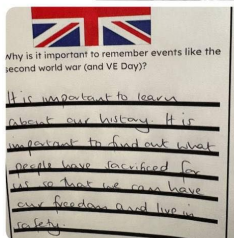 Why is it important to remember events like the
second world war (and VE Day)?
It is important to learn
about our history. It is
important to find out what
people have sacrificed for
us so that we can have
our freedom and live in
safety.